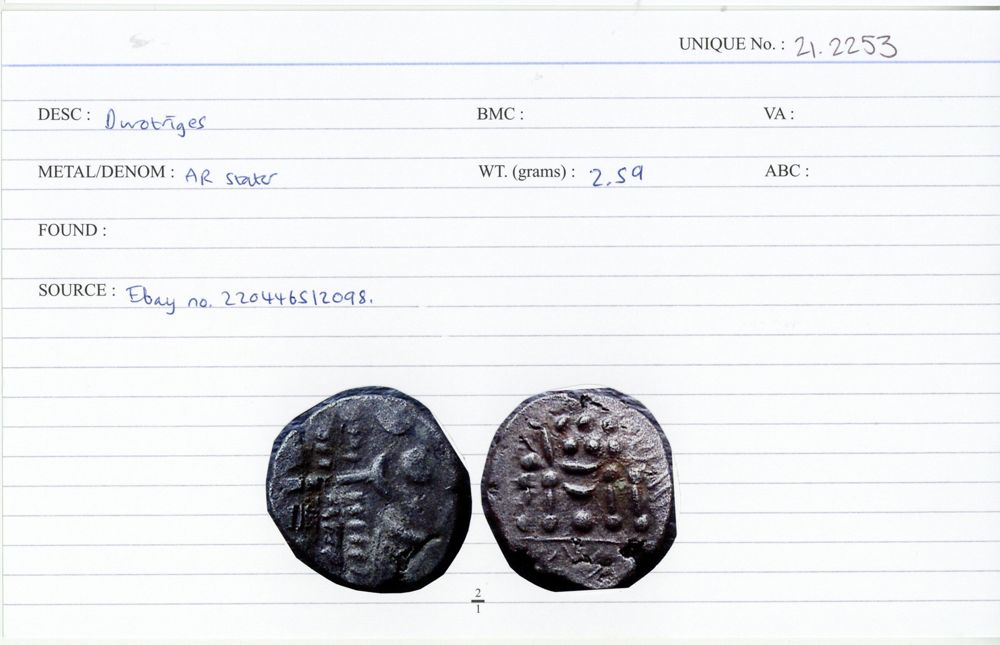 UNIQUE No. : 21.2253
DESC : Durotriges BMC : VA :
METAL/DENOM : AR stater WT. (grams) : 2.59 ABC :
FOUND :
SOURCE : Ebay no. 220446512098.
2
1